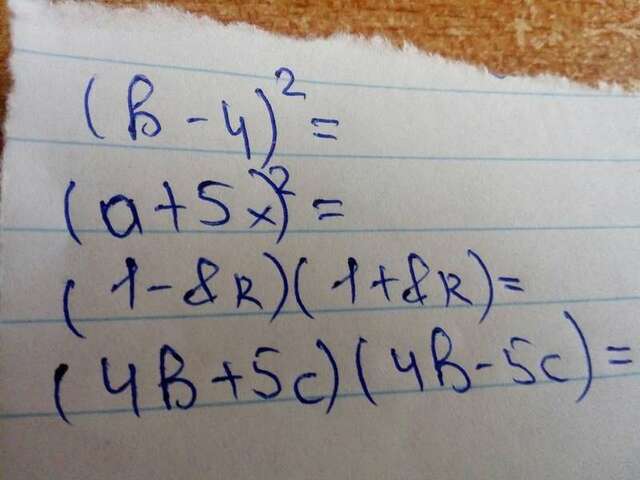 (b-4)²=
(a+5x)²=
(1-8k)(1+8k)=
(4b+5c)(4b-5c)=